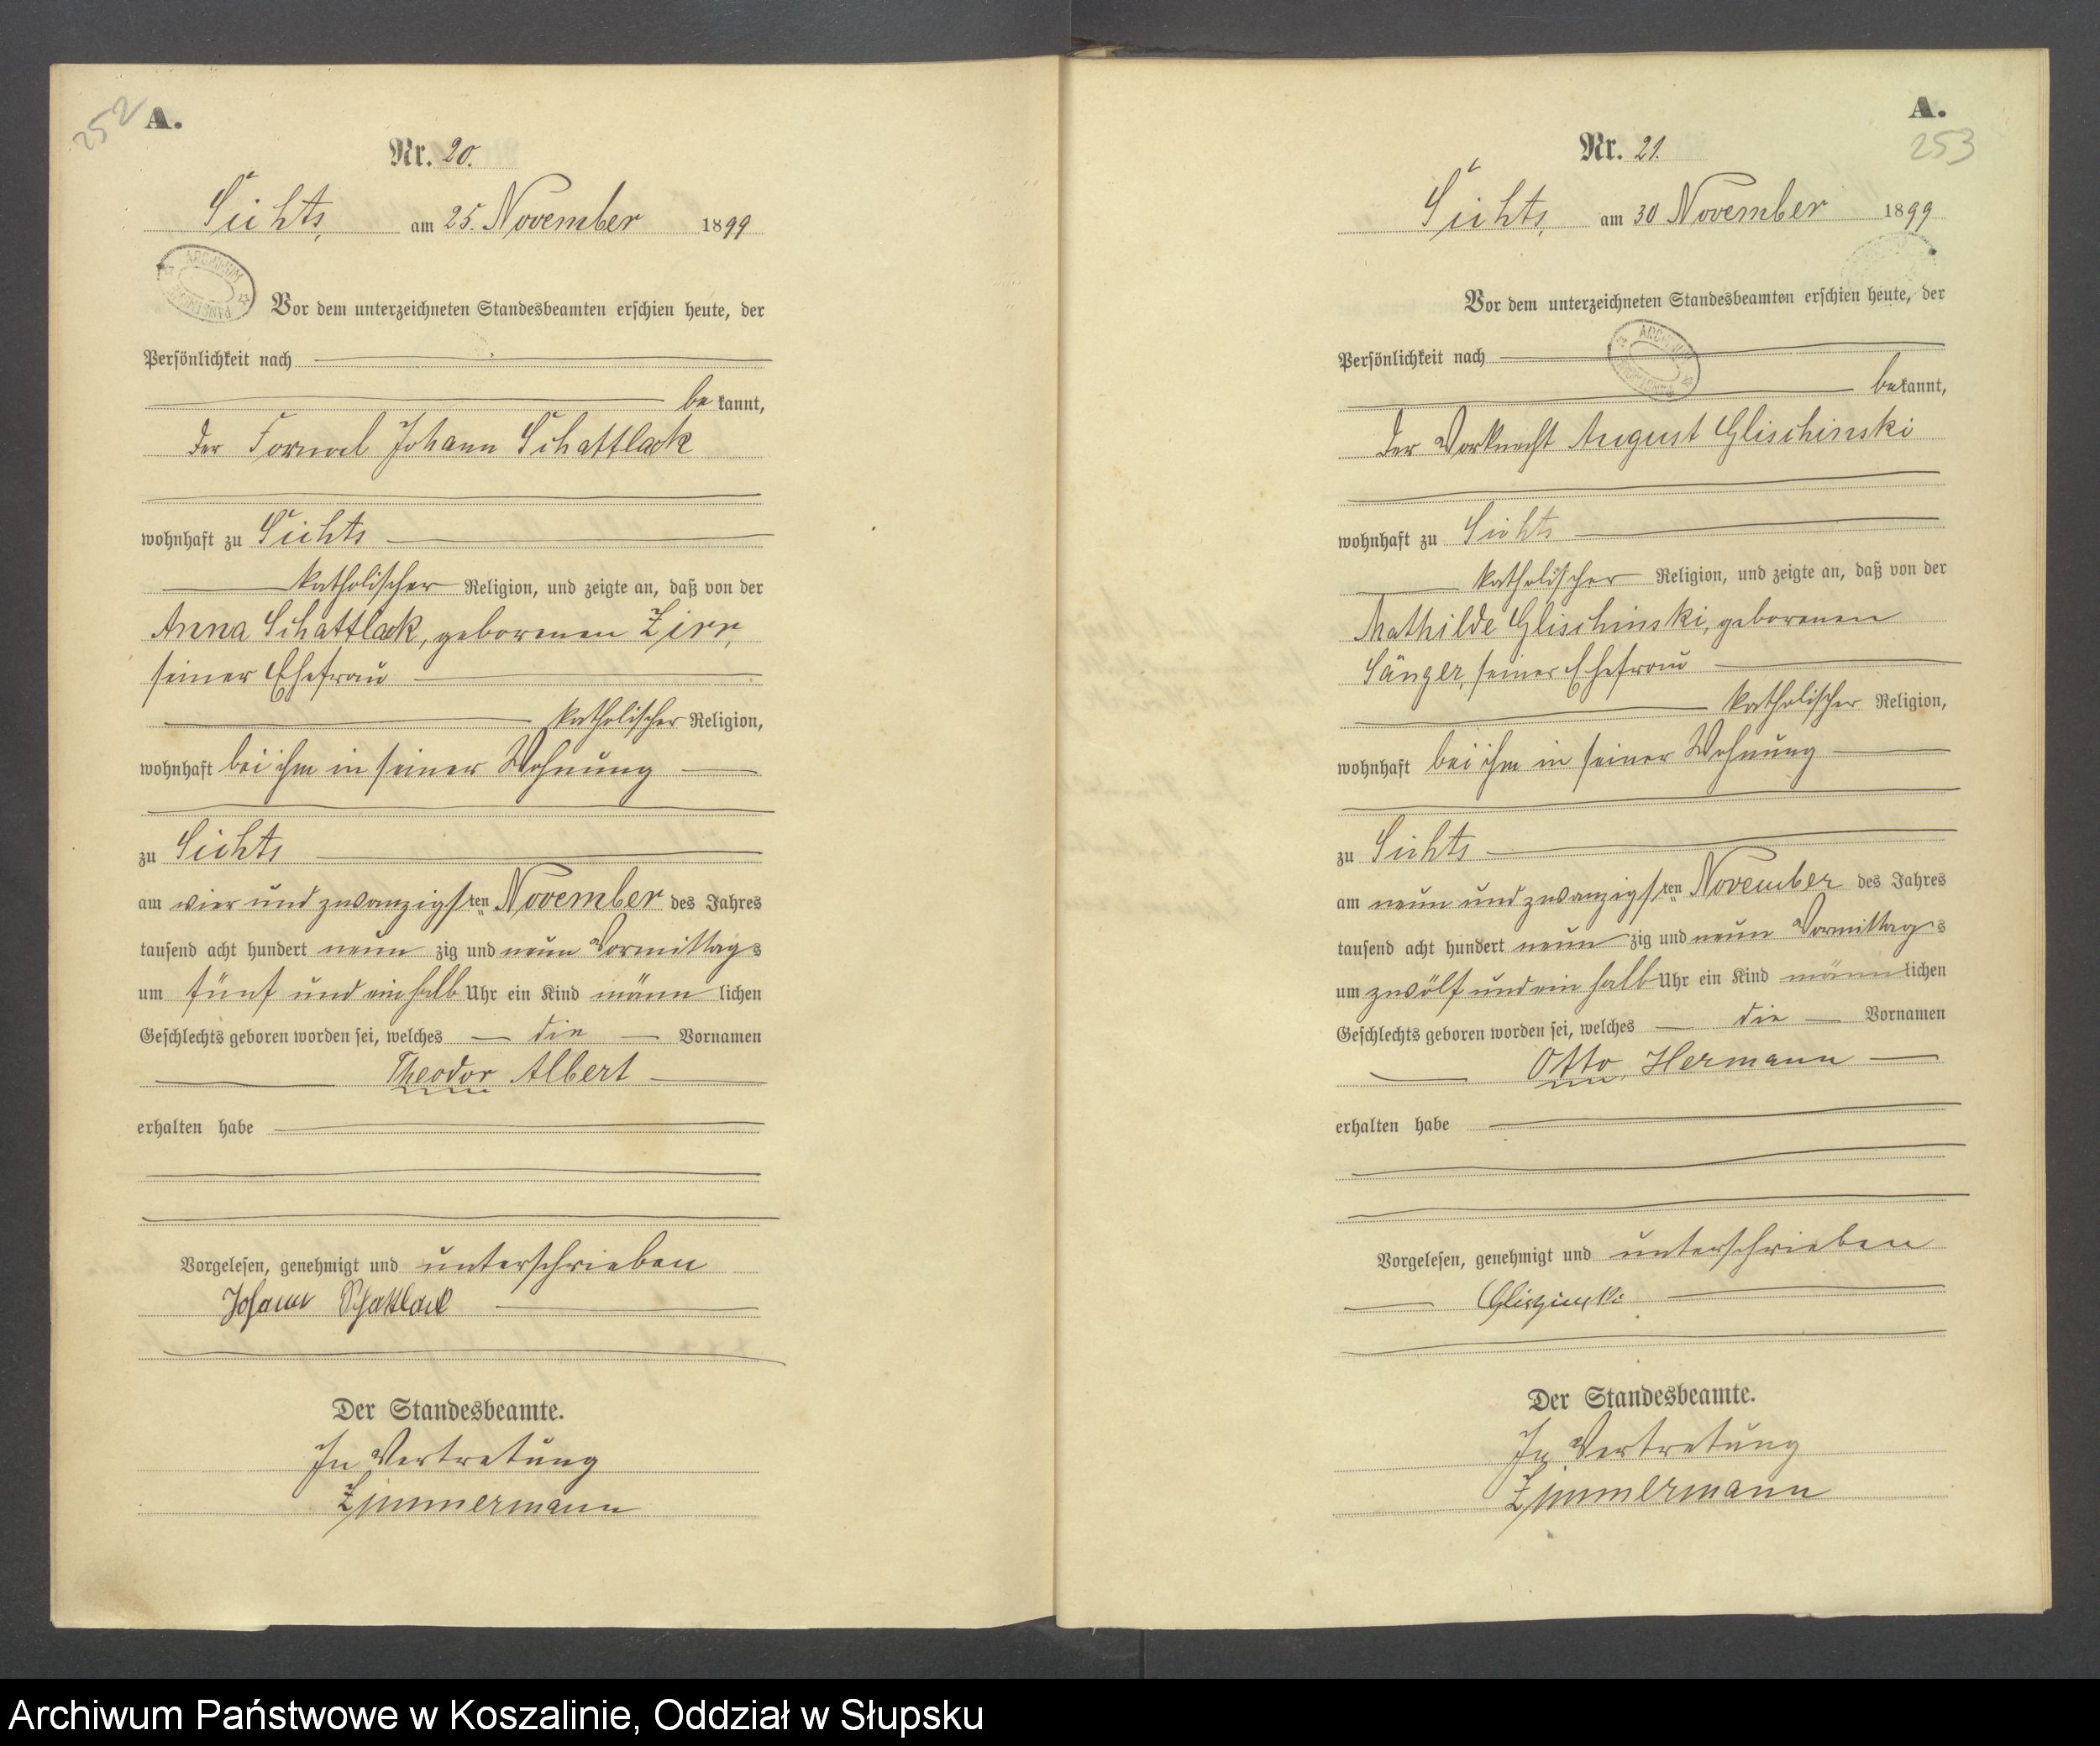 252
A.
Nr. 20.
Sichts, am 25. November 1899
ARCHIWUM PAŃSTWOWE
Vor dem unterzeichneten Standesbeamten erschien heute, der
Persönlichkeit nach
be kannt,
der Fornal Johann Schattlack
wohnhaft zu Sichts
katholischer Religion, und zeigte an, daß von der
Anna Schattlack, geborenen Zirr,
seiner Ehefrau
katholischer Religion,
wohnhaft bei ihm in seiner Wohnung
zu Sichts
am vier und zwanzigsten November des Jahres
tausend acht hundert neun zig und neun Vormittags
um fünf und ein halb Uhr ein Kind männ lichen
Geschlechts geboren worden sei, welches die Vornamen
Theodor Albert
erhalten habe
Vorgelesen, genehmigt und unterschrieben
Johann Schattlack
Der Standesbeamte.
In Vertretung
Zimmermann
A.
253
Nr. 21.
Sichts, am 30 November 1899
Vor dem unterzeichneten Standesbeamten erschien heute, der
ARCHIWUM PAŃSTWOWE
Persönlichkeit nach
bekannt,
der Vorknecht August Glischinski
wohnhaft zu Sichts
katholischer Religion, und zeigte an, daß von der
Mathilde Glischinski, geborenen
Sänger, seiner Ehefrau
katholischer Religion,
wohnhaft bei ihm in seiner Wohnung
zu Sichts
am neun und zwanzigsten November des Jahres
tausend acht hundert neun zig und neun Vormittags
um zwölf und ein halb Uhr ein Kind männlichen
Geschlechts geboren worden sei, welches die Vornamen
Otto, Hermann
erhalten habe
Vorgelesen, genehmigt und unterschrieben
Der Standesbeamte.
In Vertretung
Zimmermann
Archiwum Państwowe w Koszalinie, Oddział w Słupsku